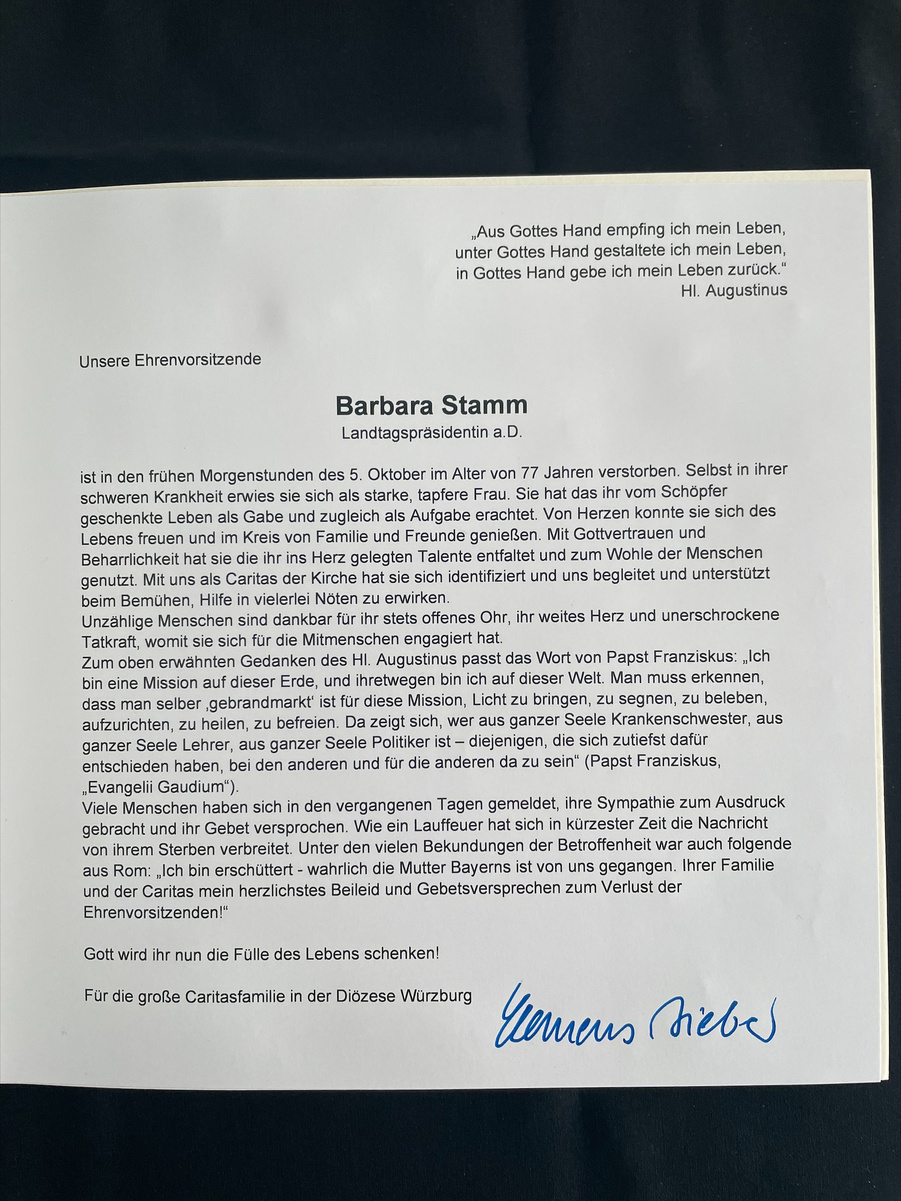 „Aus Gottes Hand empfing ich mein Leben,
unter Gottes Hand gestaltete ich mein Leben,
in Gottes Hand gebe ich mein Leben zurück.“
Hl. Augustinus
Unsere Ehrenvorsitzende
Barbara Stamm
Landtagspräsidentin a.D.
ist in den frühen Morgenstunden des 5. Oktober im Alter von 77 Jahren verstorben. Selbst in ihrer
schweren Krankheit erwies sie sich als starke, tapfere Frau. Sie hat das ihr vom Schöpfer
geschenkte Leben als Gabe und zugleich als Aufgabe erachtet. Von Herzen konnte sie sich des
Lebens freuen und im Kreis von Familie und Freunde genießen. Mit Gottvertrauen und
Beharrlichkeit hat sie die ihr ins Herz gelegten Talente entfaltet und zum Wohle der Menschen
genutzt. Mit uns als Caritas der Kirche hat sie sich identifiziert und uns begleitet und unterstützt
beim Bemühen, Hilfe in vielerlei Nöten zu erwirken.
Unzählige Menschen sind dankbar für ihr stets offenes Ohr, ihr weites Herz und unerschrockene
Tatkraft, womit sie sich für die Mitmenschen engagiert hat.
Zum oben erwähnten Gedanken des Hl. Augustinus passt das Wort von Papst Franziskus: „Ich
bin eine Mission auf dieser Erde, und ihretwegen bin ich auf dieser Welt. Man muss erkennen,
dass man selber ‚gebrandmarkt‘ ist für diese Mission, Licht zu bringen, zu segnen, zu beleben,
aufzurichten, zu heilen, zu befreien. Da zeigt sich, wer aus ganzer Seele Krankenschwester, aus
ganzer Seele Lehrer, aus ganzer Seele Politiker ist – diejenigen, die sich zutiefst dafür
entschieden haben, bei den anderen und für die anderen da zu sein“ (Papst Franziskus,
„Evangelii Gaudium“).
Viele Menschen haben sich in den vergangenen Tagen gemeldet, ihre Sympathie zum Ausdruck
gebracht und ihr Gebet versprochen. Wie ein Lauffeuer hat sich in kürzester Zeit die Nachricht
von ihrem Sterben verbreitet. Unter den vielen Bekundungen der Betroffenheit war auch folgende
aus Rom: „Ich bin erschüttert - wahrlich die Mutter Bayerns ist von uns gegangen. Ihrer Familie
und der Caritas mein herzlichstes Beileid und Gebetsversprechen zum Verlust der
Ehrenvorsitzenden!“
Gott wird ihr nun die Fülle des Lebens schenken!
Für die große Caritasfamilie in der Diözese Würzburg
Clemens Bieber